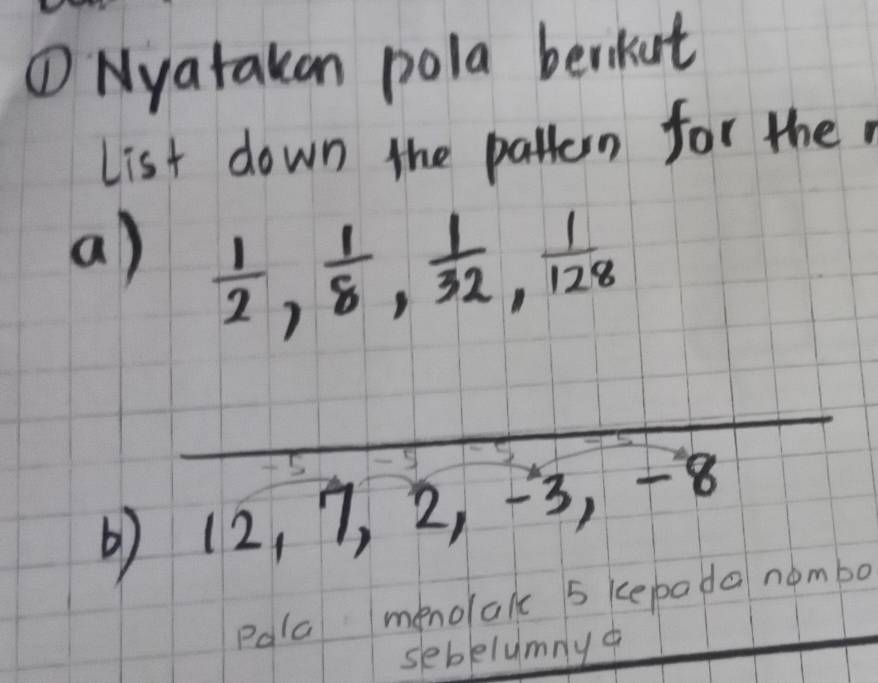 ① Nyatakan pola berikut
List down the pattern for the
a) 1/2, 1/8, 1/32, 1/128
-5 -5 -5 -5
b) 12, 7, 2, -3, -8
Pola menolak 5 kepada nombo
sebelumnya